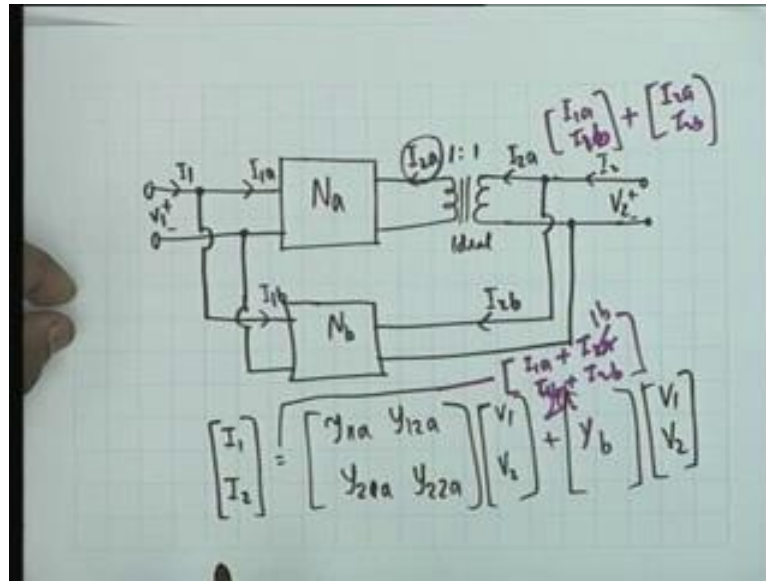 [I1a I2b] + [I2a I2b]
I1 I1a Na I2a 1:1 I2a I2
V1 + - Ideal V2 + -
I1b Nb I2b
1b
[I1a + I2b]
[I1 I2] = [y11a y12a y21a y22a] [V1 V2] + [yb] [V1 V2]